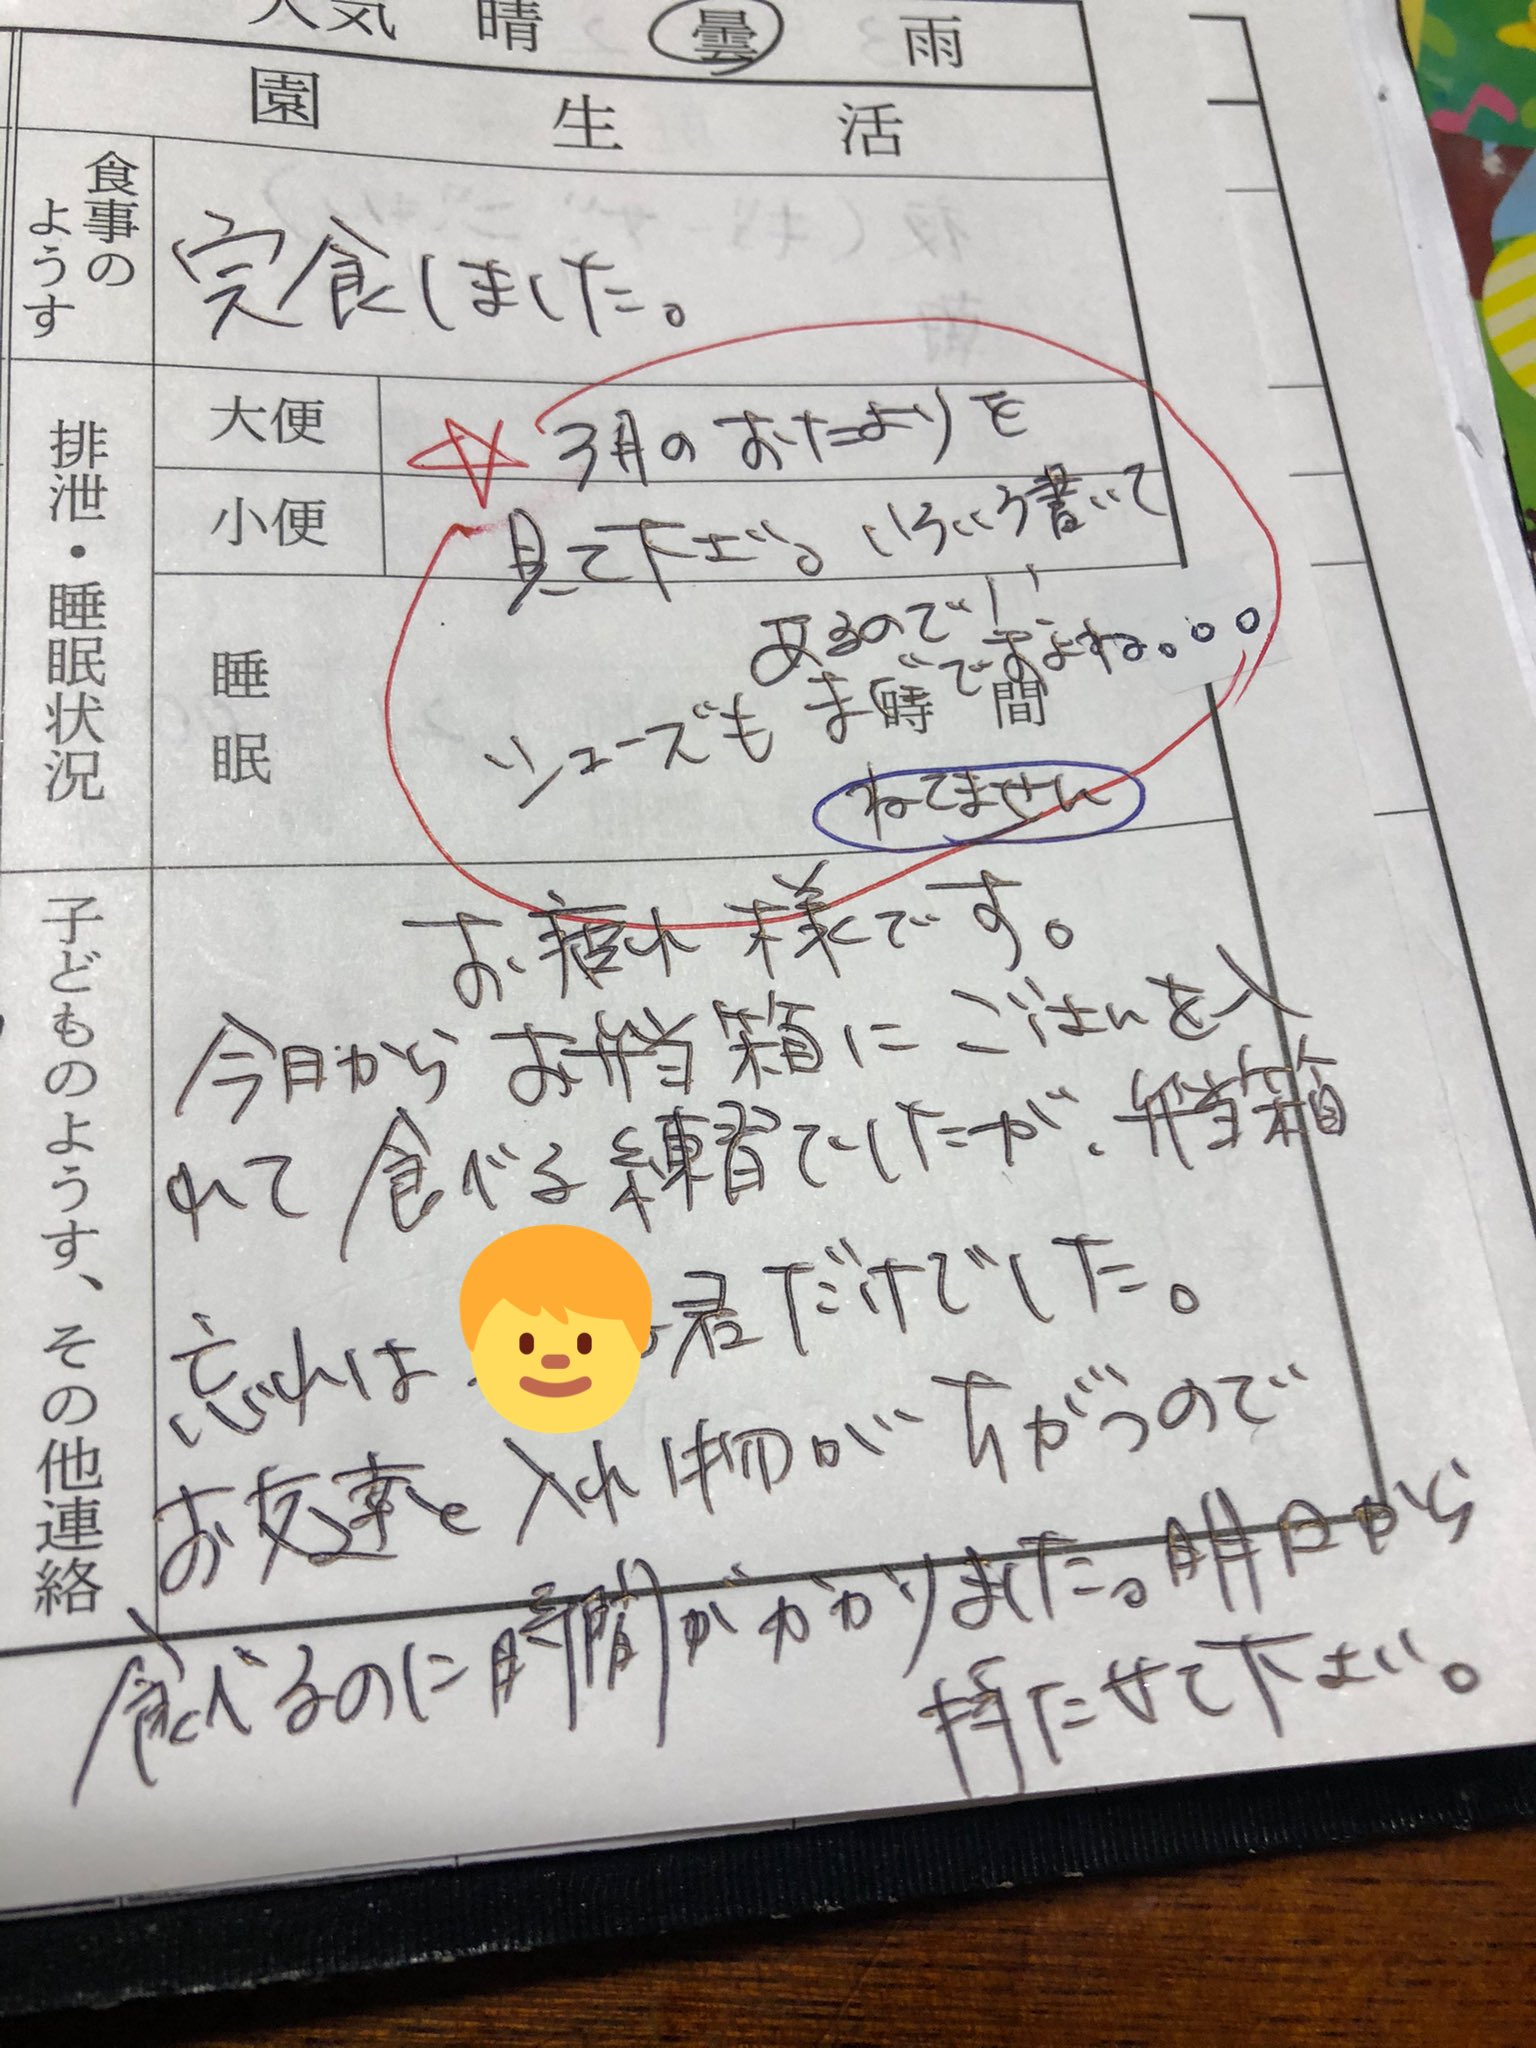 天気 晴 曇 雨
園生活
食事のようす
完食しました。
排泄・睡眠状況
大便
小便
睡眠
時間
☆3月のおたよりを
見て下さい。いろいろ書いて
あるので!!
まよね。。。
シューズもまだで
ねてません
子どものようす、その他連絡
お疲れ様です。
今日からお弁当箱にごはんを入
れて食べる練習でしたが、弁当箱
忘れは 君だけでした。
お友達と入れ物がちがうので
食べるのに時間がかかりました。明日から
持たせて下さい。